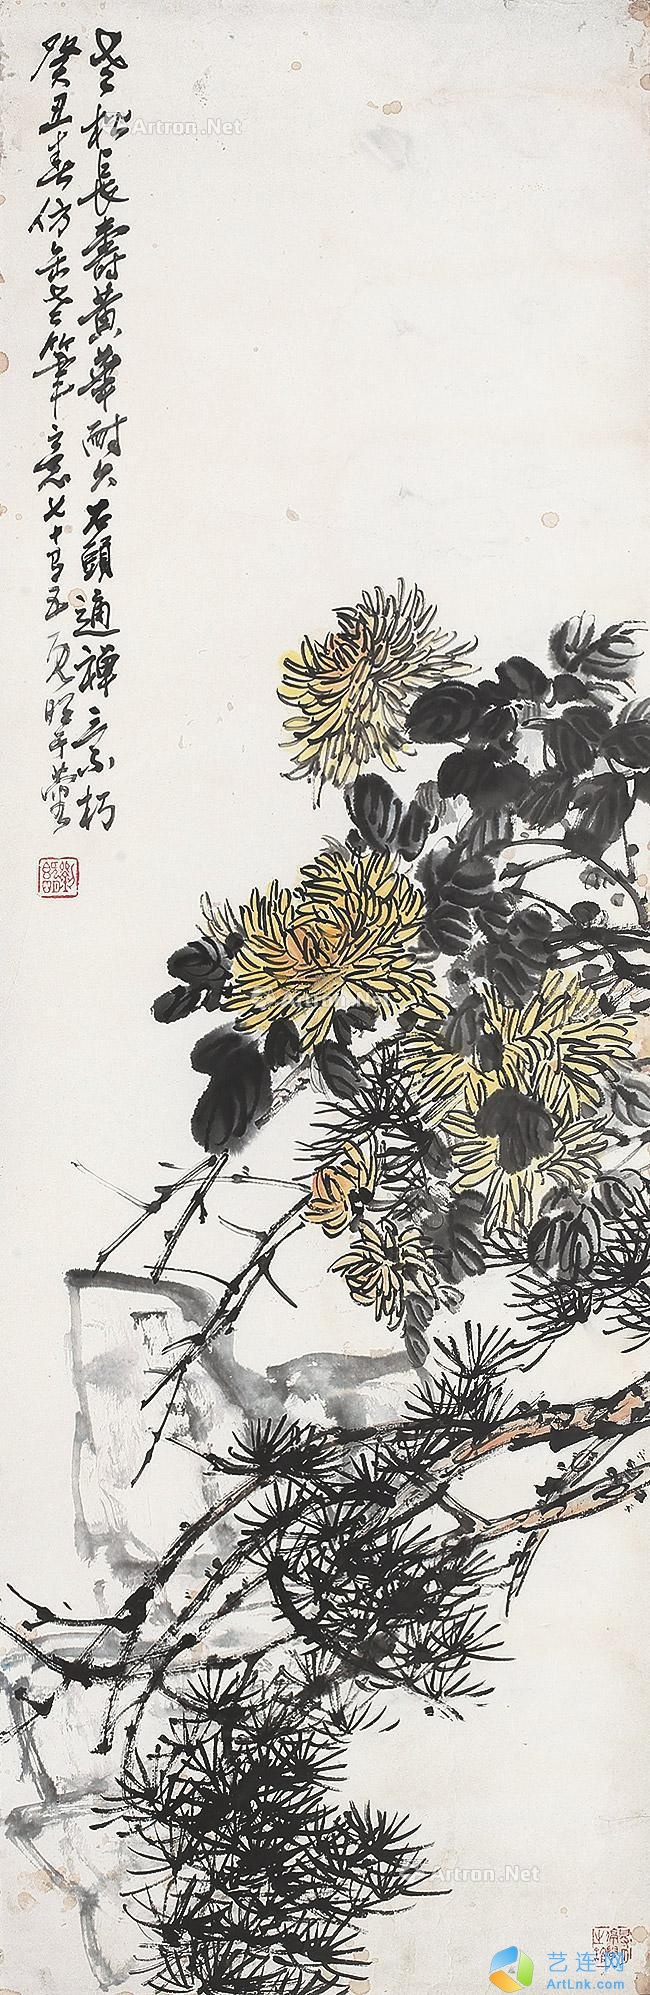 老松長壽黄華耐久石頭通禪意不朽
癸丑春仿缶老筆意七十有五
Artron.Net
Artron.Net
Artron.Net
艺连网
ArtLnk.com